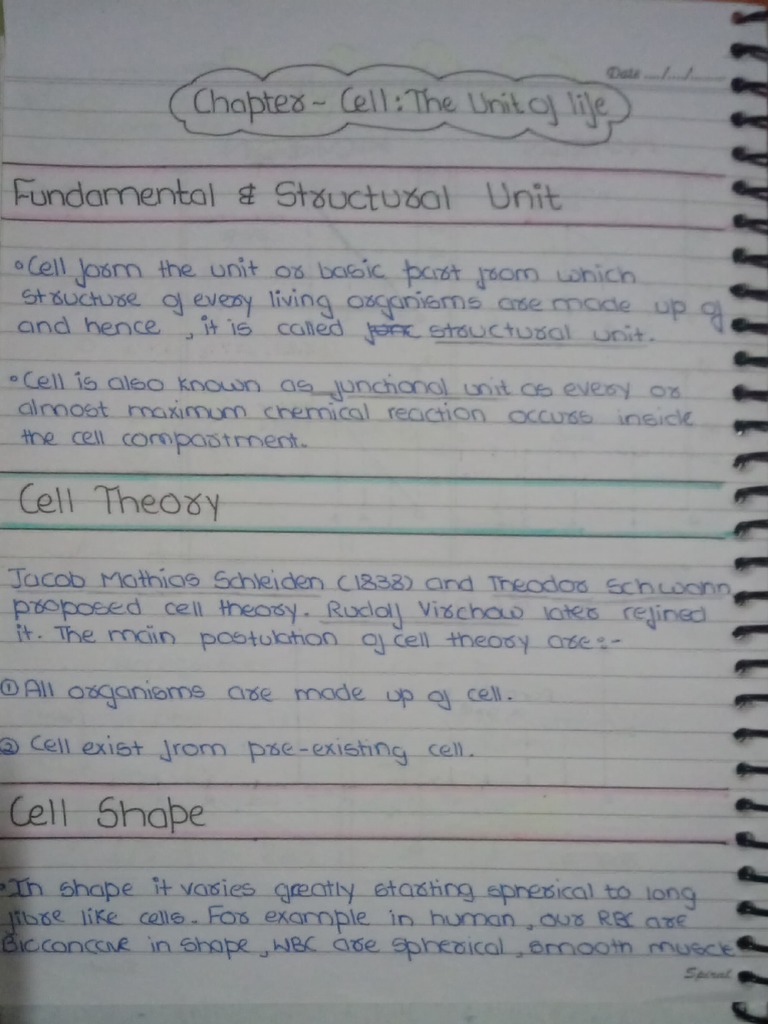 Date .../.../......
Chapter - Cell: The Unit of life
Fundamental & Structural Unit
• Cell form the unit or basic part from which
structure of every living organisms are made up of
and hence, it is called structural unit.
• Cell is also known as functional unit as every or
almost maximum chemical reaction occurs inside
the cell compartment.
Cell Theory
Jacob Mathias Schleiden (1838) and Theodor Schwann
proposed cell theory. Rudolf Virchow later refined
it. The main postulation of cell theory are:-
① All organisms are made up of cell.
② Cell exist from pre-existing cell.
Cell Shape
• In shape it varies greatly starting spherical to long
fibre like cells. For example in human, our RBC are
Bicconcave in shape, WBC are spherical, smooth muscle
Spiral